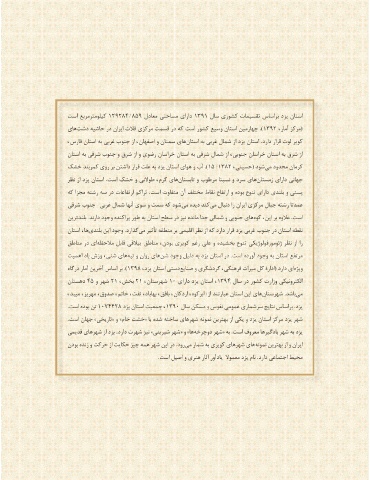 استان یزد براساس تقسیمات کشوری سال ۱۳۹۱ دارای مساحتی معادل ۱۲۹۲۸۴/۸۵۹ کیلومترمربع است
(مرکز آمار، ۱۳۹۲). چهارمین استان وسیع کشور است که در قسمت مرکزی فلات ایران در حاشیه دشت‌های
کویر لوت قرار دارد. استان یزد از شمال غربی به استان‌های سمنان و اصفهان، از جنوب غربی به استان فارس،
از شرق به استان خراسان جنوبی، از شمال شرقی به استان خراسان رضوی و از شرق و جنوب شرقی به استان
کرمان محدود می‌شود (حسینی، ۱۳۸۴: ۱۵). آب و هوای استان یزد به علت قرار داشتن بر روی کمربند خشک
جهانی دارای زمستان‌های سرد و نسبتا مرطوب و تابستان‌های گرم، طولانی و خشک است. استان یزد از نظر
پستی و بلندی دارای تنوع بوده و ارتفاع نقاط مختلف آن متفاوت است. تراکم ارتفاعات در سه رشته مجزا که
عمدتا رشته جبال مرکزی ایران را دنبال می‌کند دیده می‌شود که سمت و سوی آنها شمال غربی جنوب شرقی
است. علاوه بر این، کوه‌های جنوبی و شمالی جدا مانده نیز در سطح استان به طور پراکنده وجود دارند. بلندترین
نقطه استان در جنوب غربی یزد قرار دارد که از نظر اقلیمی بر منطقه تأثیر می‌گذارد. وجود این بلندی‌ها، استان
را از نظر ژئومورفولوژیکی تنوع بخشیده و علی رغم کویری بودن، مناطق ییلاقی قابل ملاحظه‌ای در مناطق
مرتفع استان به وجود آورده است. در استان یزد به دلیل وجود شن‌های روان و تپه‌های شنی، ورزش پا اهمیت
ویژه‌ای دارد (اداره کل میراث فرهنگی، گردشگری و صنایع‌دستی استان یزد، ۱۳۹۸). بر اساس آخرین آمار درگاه
الکترونیکی وزارت کشور در سال ۱۳۹۴، استان یزد دارای ۱۰ شهرستان، ۲۱ بخش، ۲۱ شهر و ۴۵ دهستان
می‌باشد. شهرستان‌های این استان عبارتند از: ابرکوه، اردکان، بافق، بهاباد، تفت، خاتم، صدوق، مهریز، میبد،
یزد. براساس نتایج سرشماری عمومی نفوس و مسکن سال ۱۳۹۰، جمعیت استان یزد ۱۰۷۴۴۲۸ تن بوده است.
شهر یزد مرکز استان یزد و یکی از بهترین نمونه شهرهای ساخته شده با «خشت خام» و «تاریخی» جهان است.
یزد به شهر بادگیرها معروف است. به «شهر دوچرخه‌ها» و «شهر شیرینی» نیز شهرت دارد. یزد از شهرهای قدیمی
ایران و از بهترین نمونه‌های شهرهای کویری به شمار می‌رود. در این شهر همه چیز حکایت از حرکت و زنده بودن
محیط اجتماعی دارد. نام یزد معمولا یادآور آثار هنری و اصیل است.